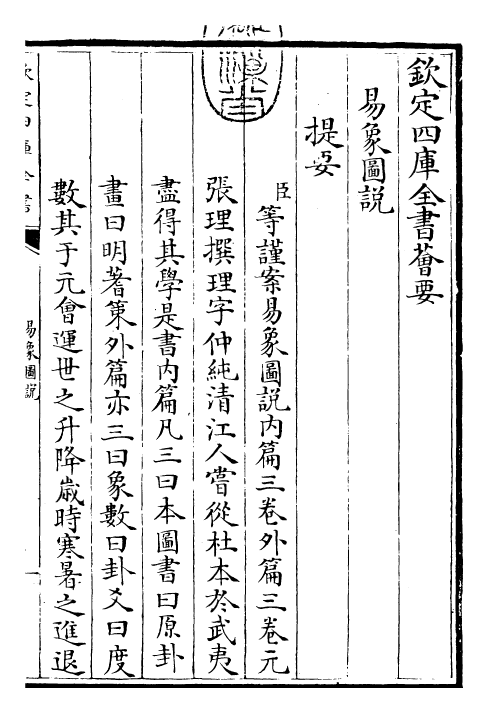 欽定四庫全書薈要
易象圖說
提要
臣等謹案易象圖說內篇三卷外篇三卷元
張理撰理字仲純清江人嘗從杜本於武夷
盡得其學是書內篇凡三曰本圖書曰原卦
畫曰明蓍策外篇亦三曰象數曰卦爻曰度
數其于元會運世之升降歲時寒暑之進退
易象圖說